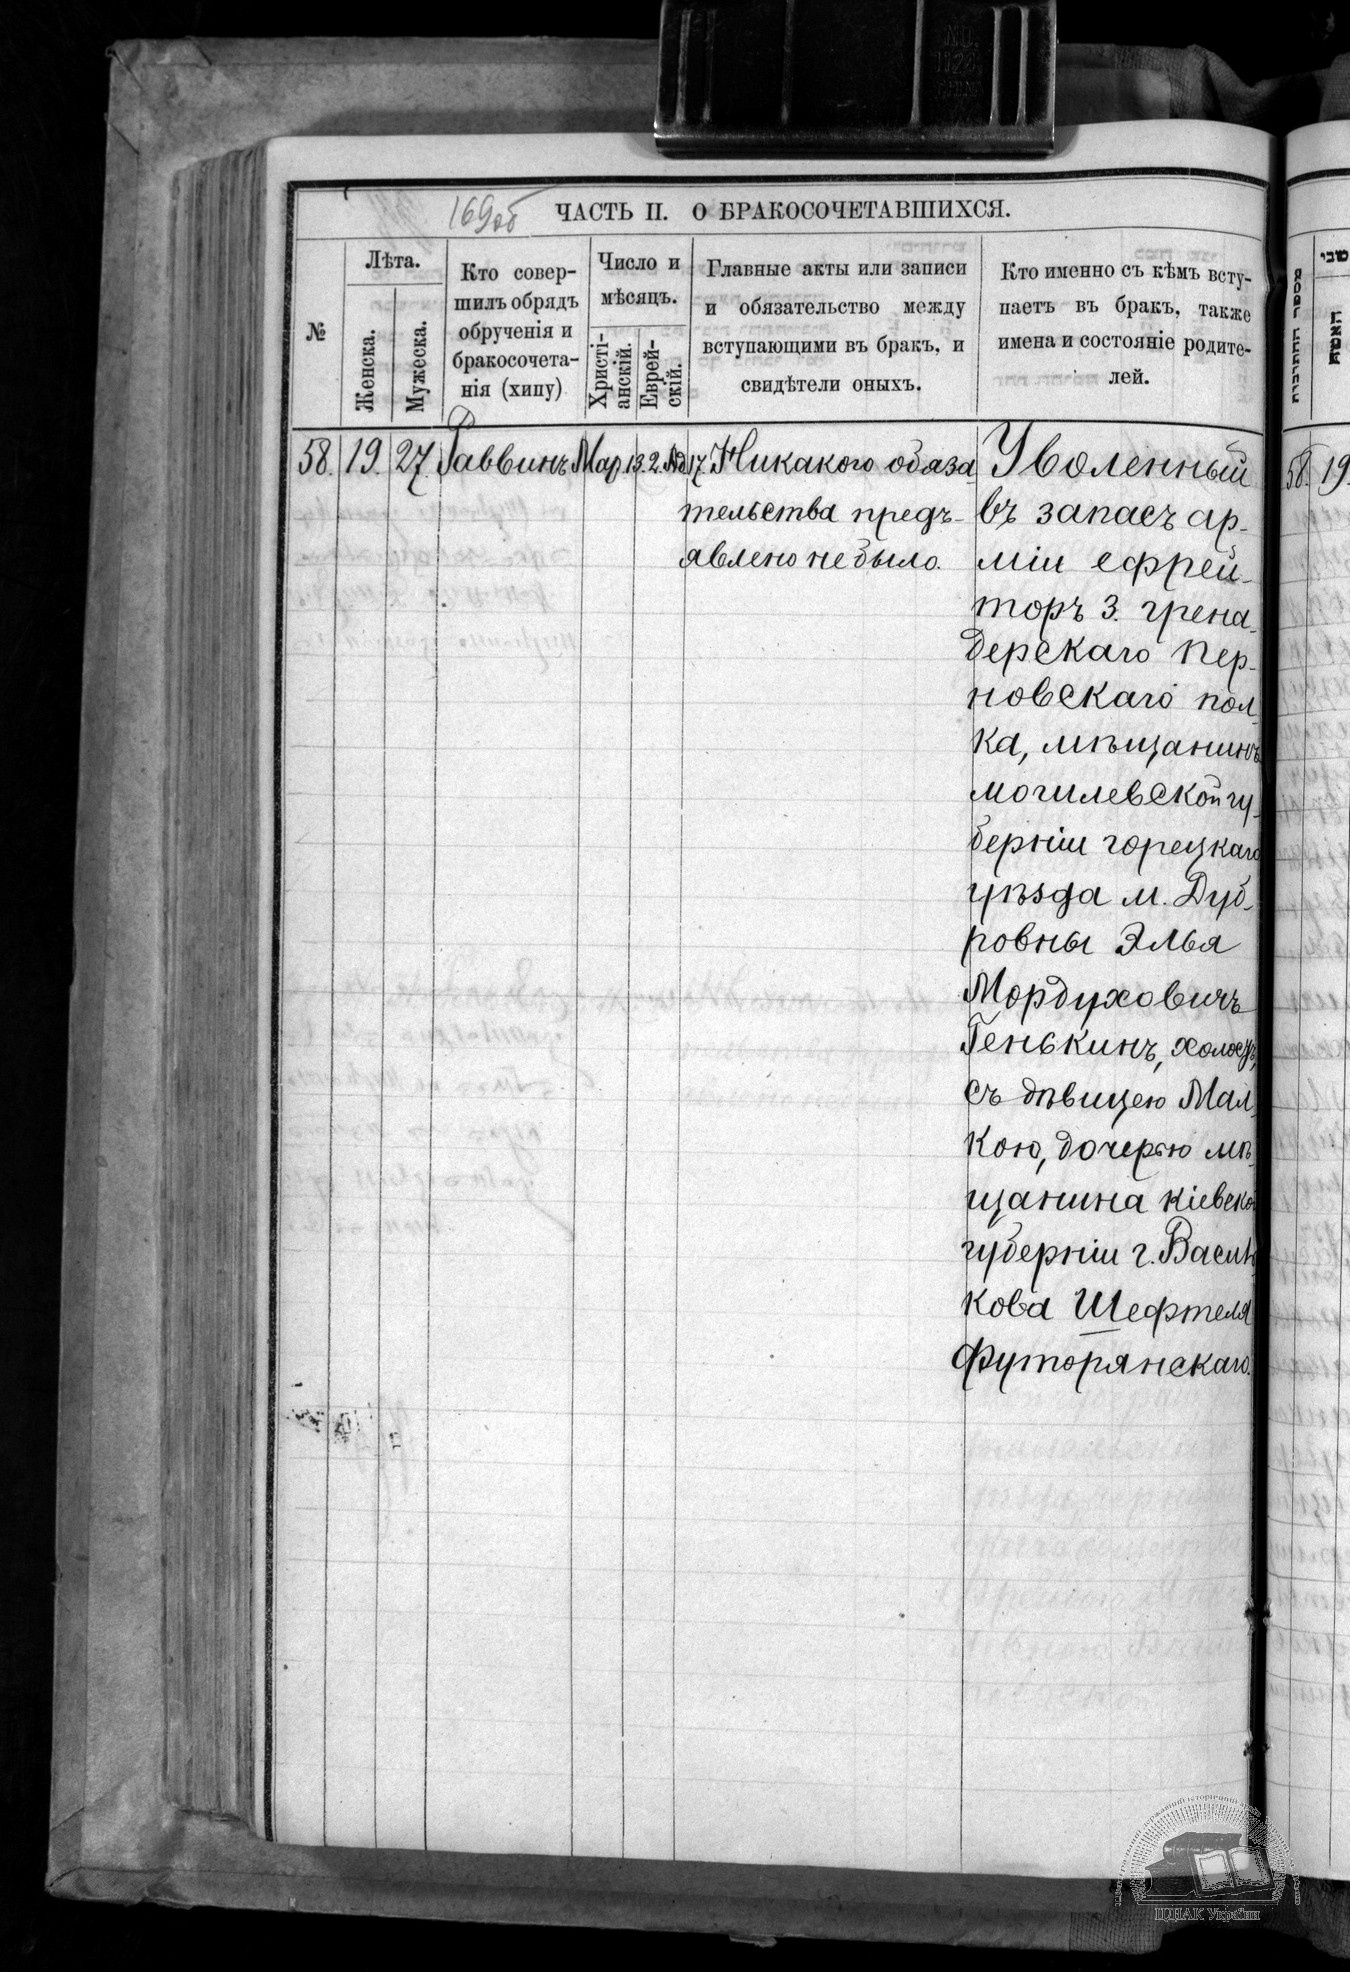 169об
ЧАСТЬ II. О БРАКОСОЧЕТАВШИХСЯ.
№
Лѣта.
Женска.
Мужеска.
Кто совер-
шилъ обрядъ
обрученія и
бракосочета-
нія (хипу)
Число и
мѣсяцъ.
Христі-
анскій.
Еврей-
скій.
Главные акты или записи
и обязательство между
вступающими въ бракъ, и
свидѣтели оныхъ.
Кто именно съ кѣмъ всту-
паетъ въ бракъ, также
имена и состояніе родите-
лей.
58. 19. 27. Раввинъ Мар. 13. 2. Ад. 17. Никакого обяза
тельства предъ-
явлено не было.
Уволенный
въ запасъ ар-
міи ефрей-
торъ 3. грена-
дерскаго Пер-
новскаго пол-
ка, мѣщанинъ
могилевской гу-
берніи горецкаго
уѣзда м. Дуб-
ровны Элья
Мордуховичъ
Генькинъ, холостъ,
съ дѣвицею Мал-
кою, дочерью мѣ-
щанина кіевской
губерніи г. Василь
кова Шефтеля
Футорянскаго.
מספר החתונות
שני
האשה
58. 19.
ЦДІАК України